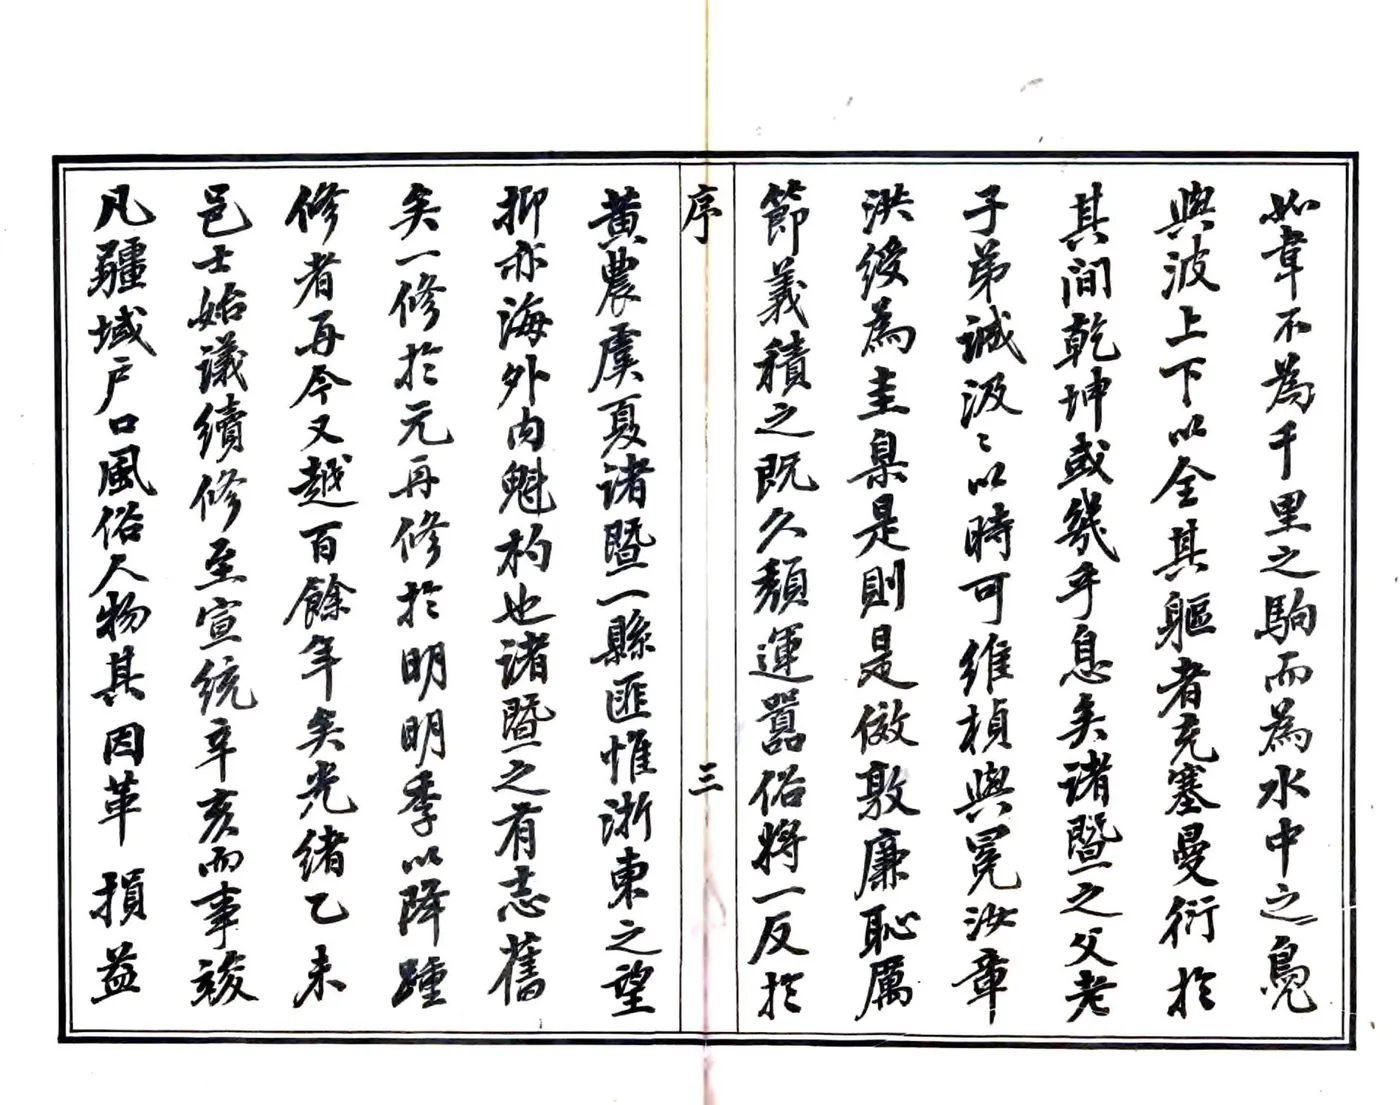 如韋不為千里之駒而為水中之鳧
與波上下以全其軀者充塞曼衍於
其間乾坤或幾乎息矣諸暨之父老
子弟誠汲〻以時可維楨與冕汝章
洪綬為圭臬是則是傚敦廉恥厲
節義積之既久頹運嚣俗將一反於
序
三
黃農虞夏諸暨一縣匪惟浙東之望
抑亦海外內魁杓也諸暨之有志舊
矣一修於元再修於明明季以降踵
修者再今又越百餘年矣光緒乙未
邑士始議續修至宣統辛亥而事竣
凡疆域戶口風俗人物其因革損益